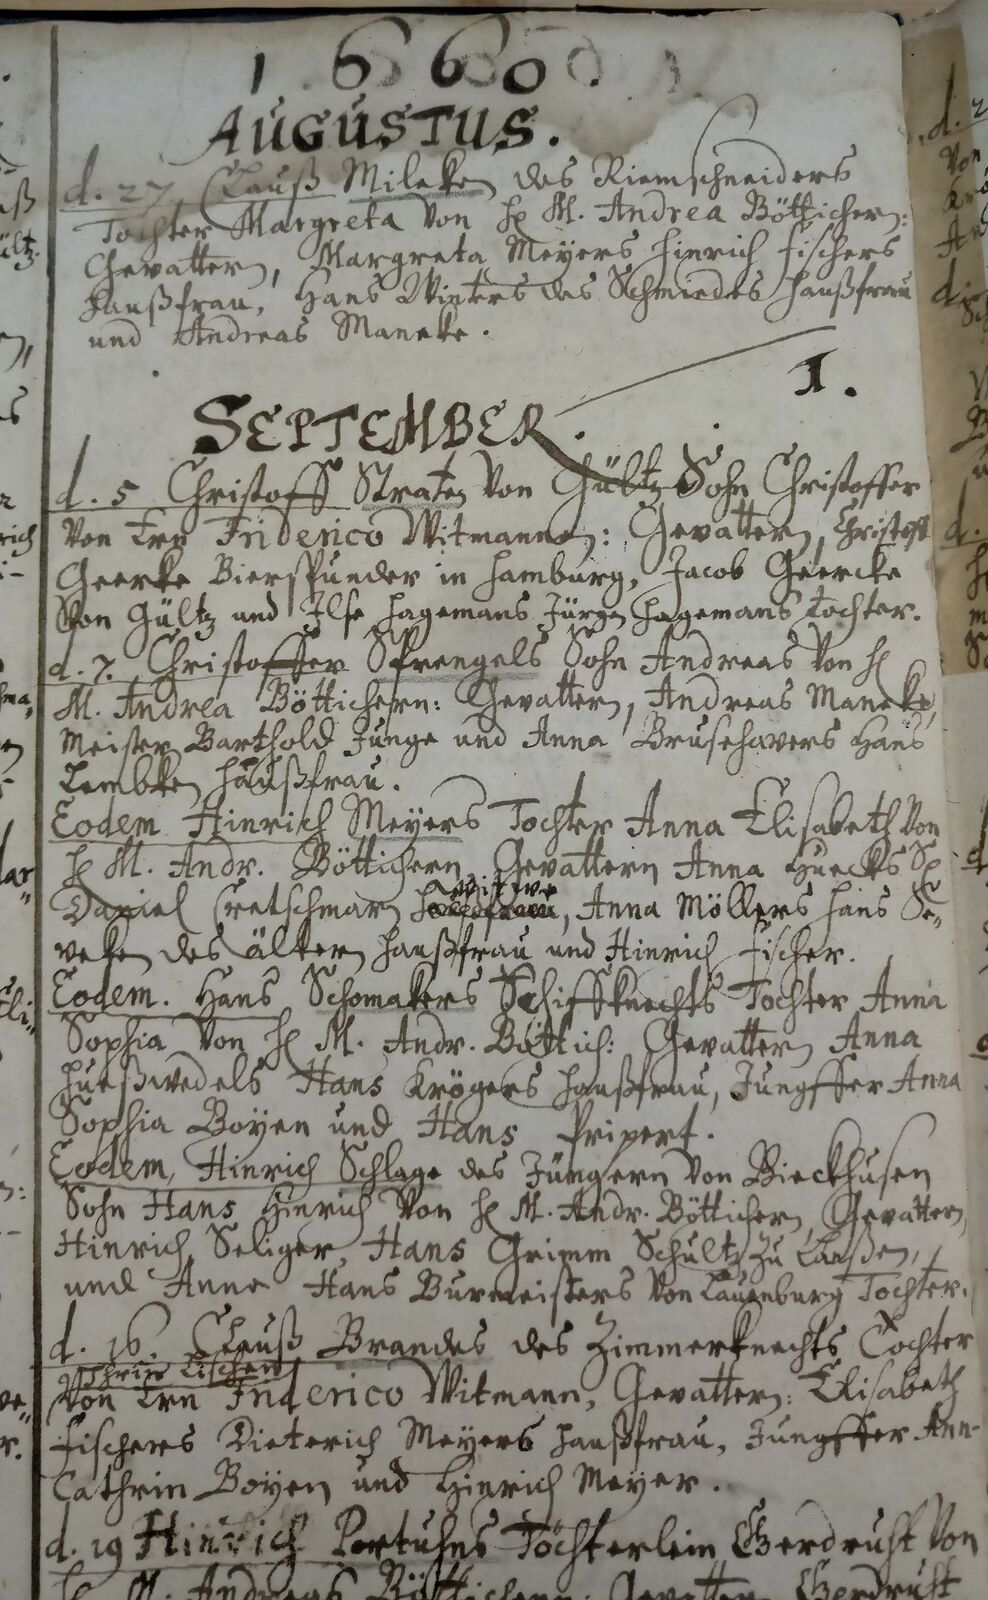 1660.
AUGUSTUS.
d. 27, Clauß Mileken des Riemschneiders
Tochter Margreta von H M. Andrea Bötticher:
Gevattern, Margreta Meyers Hinrich Fischers
Haußfrau, Hans Winters des Schmiedes Haußfrau
und Andreas Maneke.
1.
SEPTEMBER.
d. 5 Christoff Straten von Gültz Sohn Christoffer
Von Ern Friderico Witmann: Gevattern, Christoff
Geerke Bierspunder in Hamburg, Jacob Geercke
Von Gültz und Ilse Hagemans Jürgen Hagemans Tochter.
d. 7. Christoffer Sprengels Sohn Andreas von H
M. Andrea Böttichern: Gevattern, Andreas Maneke,
Meister Barthold Junge und Anna Brusehavers Hans
Lembken Haußfrau.
Eodem Hinrich Meyers Tochter Anna Elisabeth von
H M. Andr. Böttichern Gevattern Anna Huecks
Daniel Cretschmarn Witwe, Anna Möllers Hans Se-
veken des ältern Haußfrau und Hinrich Fischer.
Eodem. Hans Schomakers Schiffknechts Tochter Anna
Sophia von H M. Andr.Böttich: Gevattern Anna
Hueßwedels Hans Krögers Haußfrau, Jungffer Anna
Sophia Boyen und Hans Pripert.
Eodem, Hinrich Schlage des Jüngern von Bieckhusen
Sohn Hans Hinrich von H M. Andr. Böttichern, Gevattern,
Hinrich Seliger, Hans Grimm Schultz zu Laaßen,
und Anne Hans Burmeisters von Lauenburg Tochter.
d. 16. Clauß Brandes des Zimmerknechts Tochter
Thrin Lischen
Von Ern Friderico Witmann, Gevattern: Elisabeth
Fischers Dieterich Meyers Haußfrau, Jungffer Ann-
Cathrin Boyen und Hinrich Meyer.
d. 19 Hinrich Portuhns Töchterlein Gerdruht von
H M. Andreas Böttichern: Gevattern Gerdruht